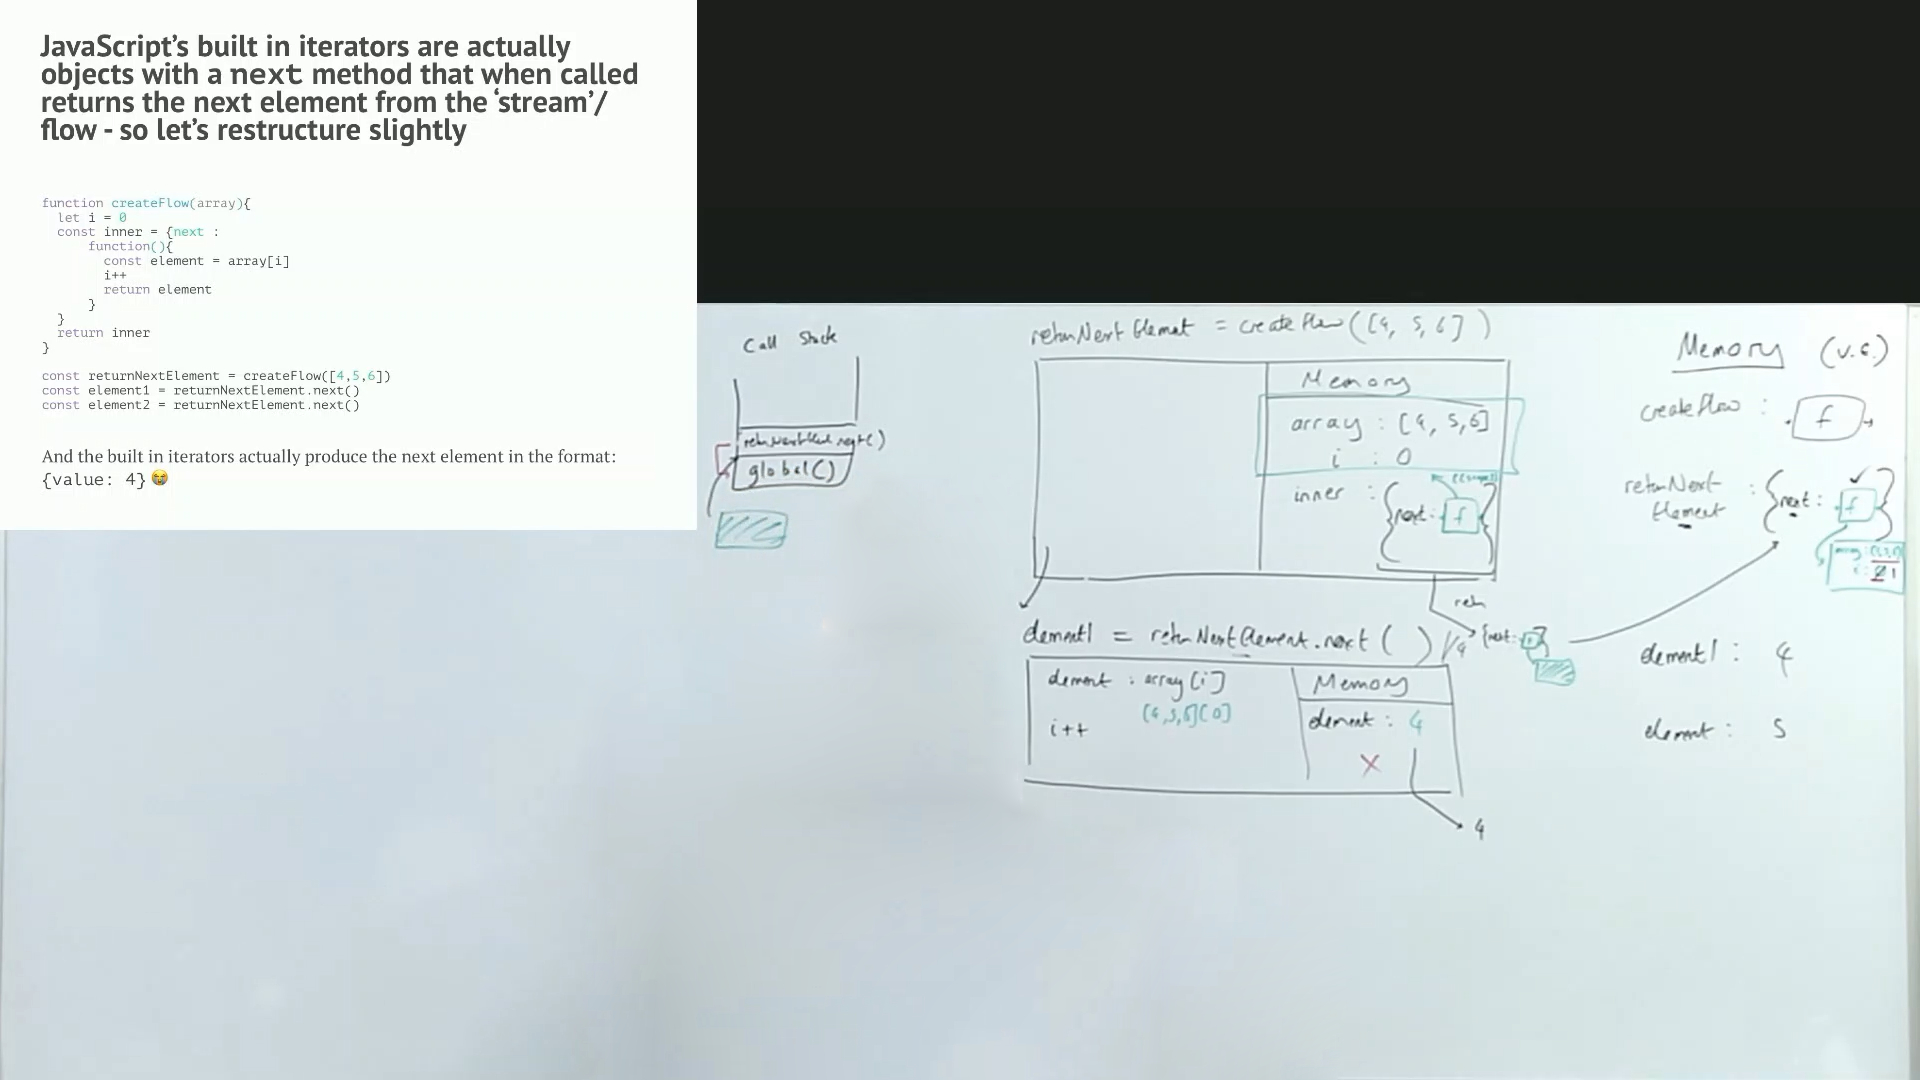 JavaScript's built in iterators are actually
objects with a next method that when called
returns the next element from the ‘stream’/
flow - so let's restructure slightly
function createFlow(array){
let i = 0
const inner = {next :
function(){
const element = array[i]
i++
return element
}
}
return inner
}
const returnNextElement = createFlow([4,5,6])
const element1 = returnNextElement.next()
const element2 = returnNextElement.next()
And the built in iterators actually produce the next element in the format:
{value: 4} 😭
Call Stack
global()
returnNextElement = createFlow([4, 5, 6])
Memory
array : [4, 5, 6]
i : 0
inner : {next: f}
element1 = returnNextElement.next ( ) 4
{next:
element : array[i]
[4,5,6][0]
i++
Memory
element : 4
X
4
Memory (v.e.)
createFlow : f
returnNext
Element : {next: f}
element1 : 4
element : 5